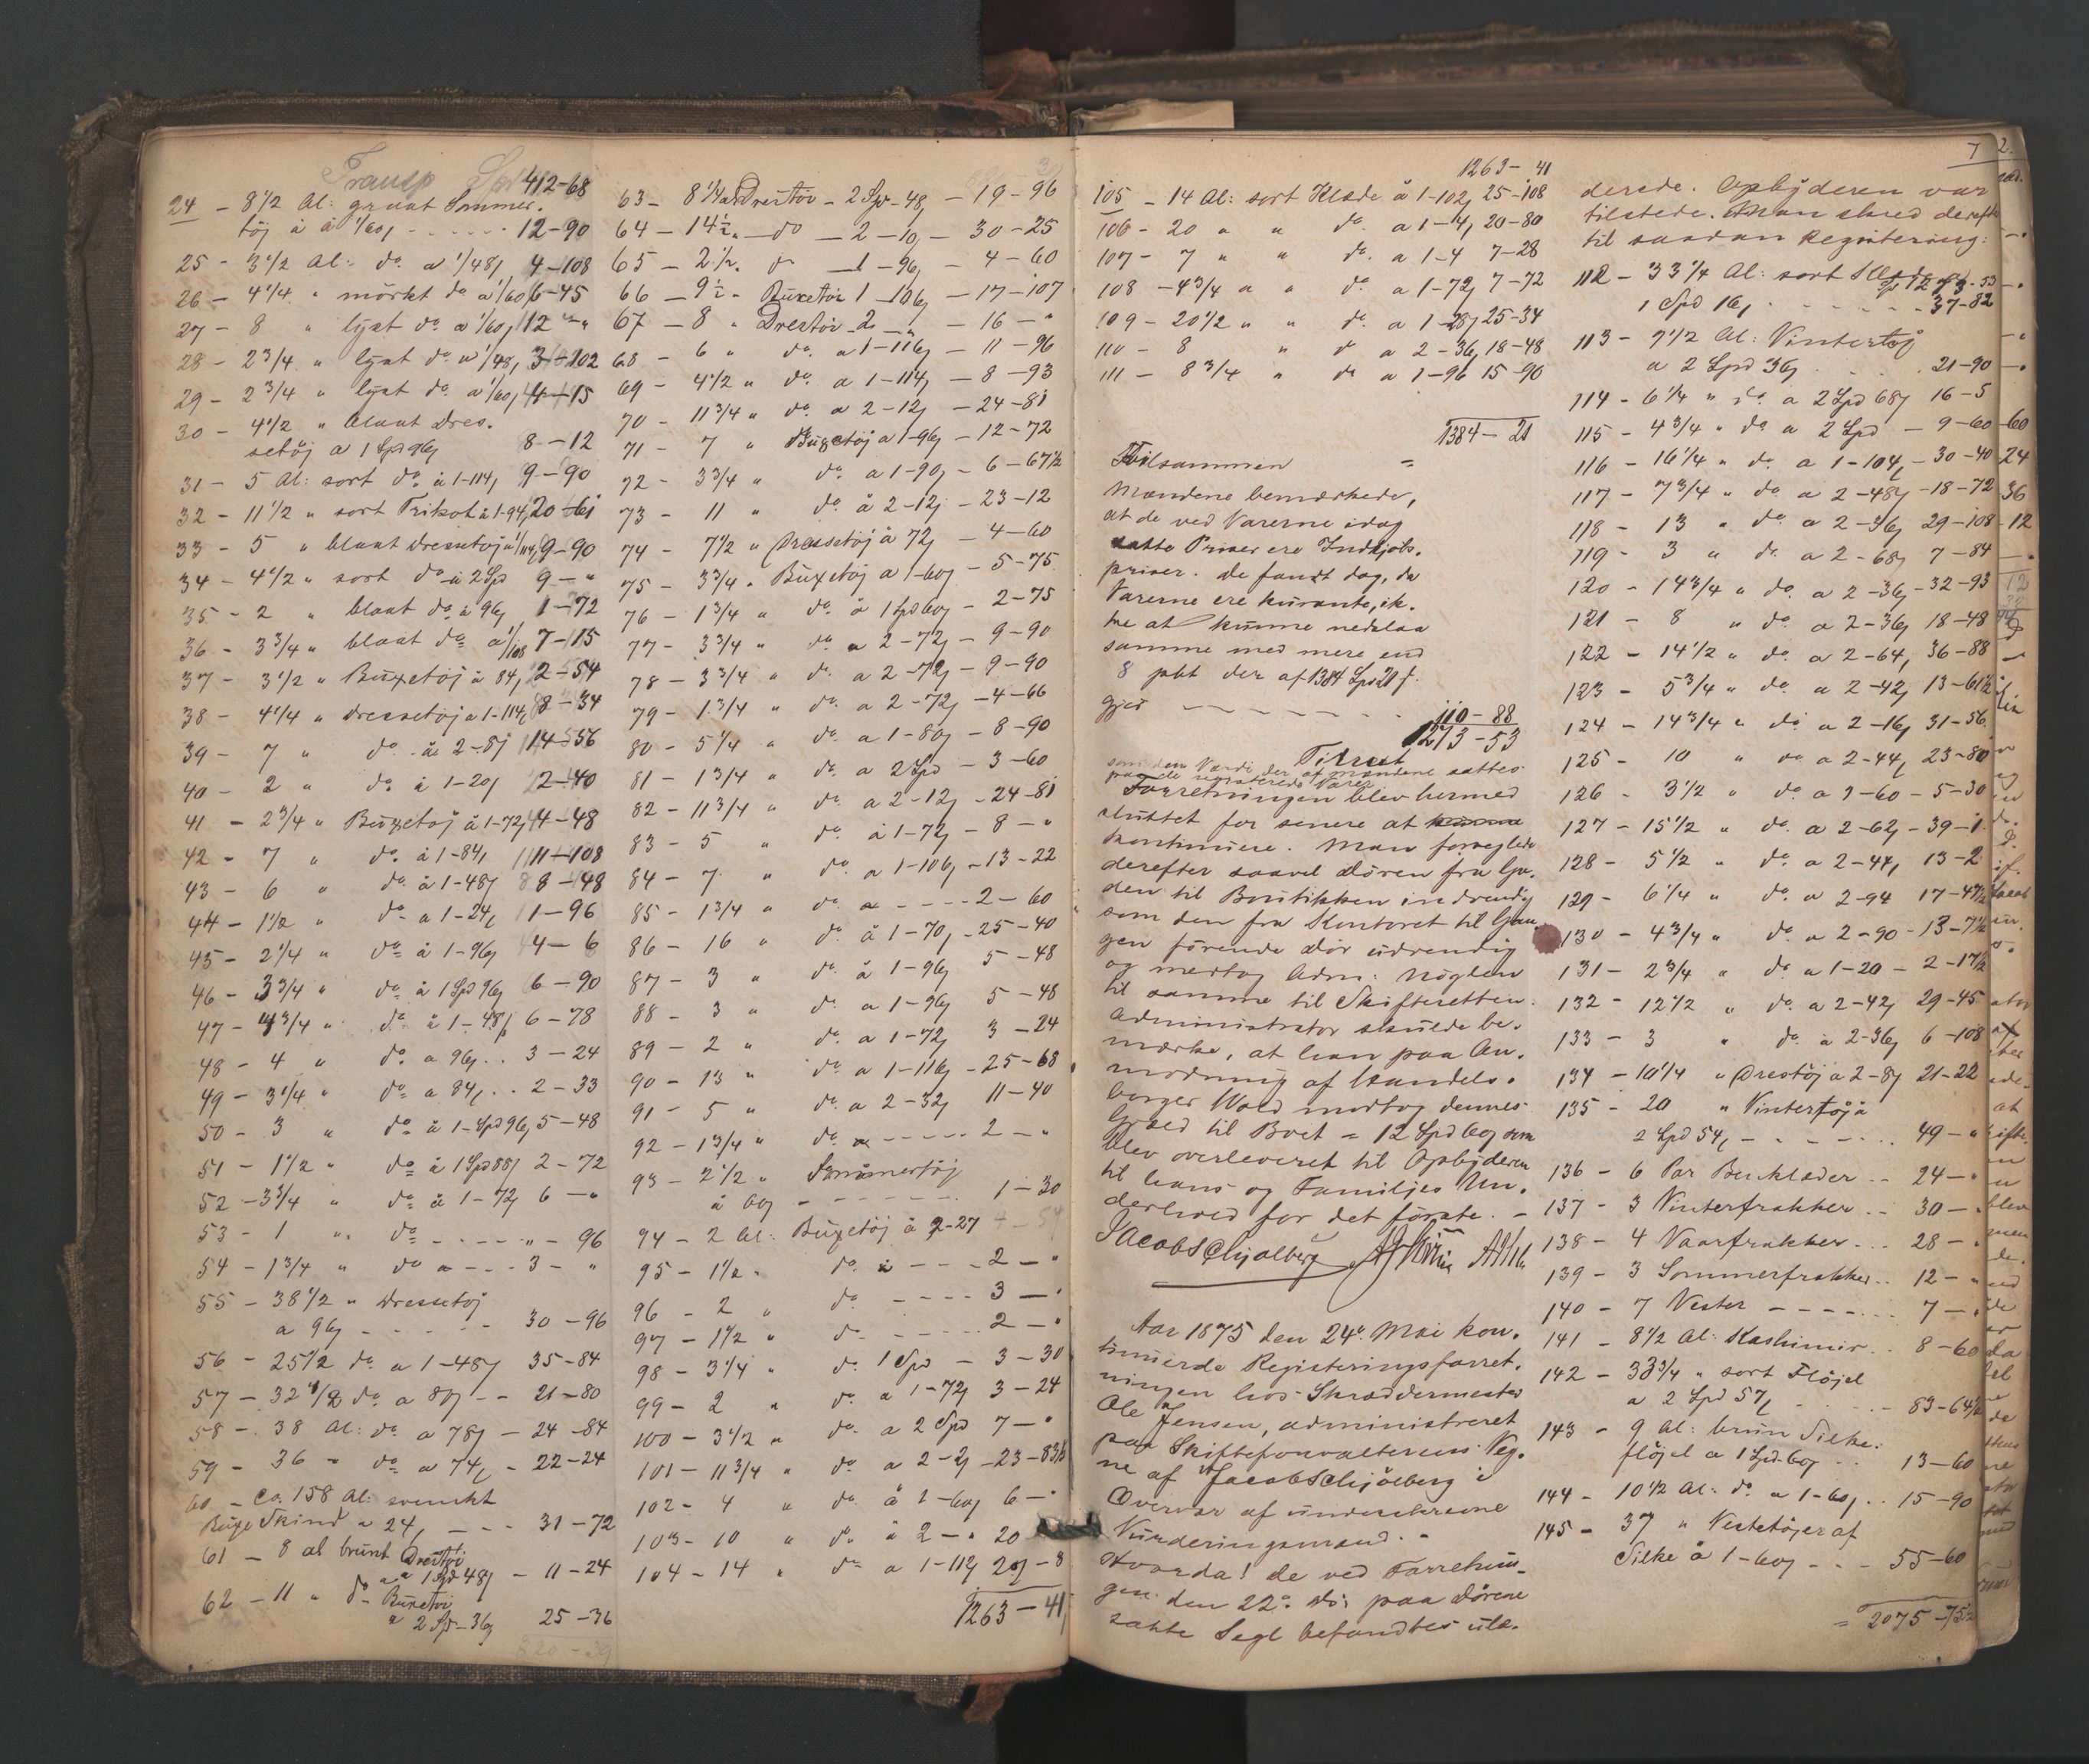 Transp Spd 412-68
24 - 8 1/2 Al: graat Sommer.
töj à 1/60 ----- 12-90
25 - 3 1/2 Al: do a 1/48 4-108
26 - 4 1/4 " mörkt do a 1/60 6-45
27 - 8 " lyst do a 1/60 12-"
28 - 2 3/4 " lyst do a 1/48, 3-102
29 - 2 3/4 " lyst do a 1/60, 4-15
30 - 4 1/2 " blaat Dres.
setöj a 1 Spd 96 8-12
31 - 5 Al: sort do à 1-114, 9-90
32 - 11 1/2 " sort Trikot à 1-94, 20-61
33 - 5 " blaat Dressetöj a 1/114, 9-90
34 - 4 1/2 " sort do à 2 Spd 9-"
35 - 2 " blaat do à 96 1-72
36 - 3 3/4 " blaat do a 1/108 7-15
37 - 3 1/2 " Buxetöj à 84, 2-54
38 - 4 1/4 " Dressetöj a 1-114, 8-34
39 - 7 " do à 2-8 14-56
40 - 2 " do à 1-20 2-40
41 - 2 3/4 " Buxetöj à 1-72 4-48
42 - 7 " do à 1-84, 11-108
43 - 6 " do à 1-48 8-48
44 - 1 1/2 " do a 1-24, 1-96
45 - 2 1/4 " do à 1-96 4-6
46 - 3 3/4 " do à 1 Spd 96 6-90
47 - 4 3/4 " do à 1-48 6-78
48 - 4 " do a 96 .. 3-24
49 - 3 1/4 " do a 84, .. 2-33
50 - 3 " do à 1-Spd 96 5-48
51 - 1 1/2 " do à 1 Spd 88 2-72
52 - 3 3/4 " do à 1-72 6-"
53 - 1 " do ---- " - 96
54 - 1 3/4 " do a --- 3-"
55 - 38 1/2 " Dressetöj
a 96 ----- 30-96
56 - 25 1/2 do a 1-48 35-84
57 - 32 1/2 do a 80 -- 21-80
58 - 38 Al: do a 78 - 24-84
59 - 36 " do a 74, - 22-24
60 - Ca. 158 Al: svenskt
Buxe Skind a 24, --- 31-72
61 - 8 al brunt Drestöi
a 1 Spd 48 - 11-24
62 - 11 " do Buxetöi
a 2 Sp-36 25-36
820-29
63 - 8 1/4 al Drestöi - 2 Sp-48, - 19-96
64 - 14 1/2 " - do - 2-10, - 30-25
65 - 2 1/2 " do - 1-96, - 4-60
66 - 9 1/2 " Buxetöi 1-106 - 17-107
67 - 8 " Drestöi 2 - " - 16-"
68 - 6 " do a 1-116 - 11-96
69 - 4 1/2 " do a 1-114, - 8-93
70 - 11 3/4 " do a 2-12 - 24-81
71 - 7 " Buxetöj a 1-96 - 12-72
72 - 3 3/4 " do a 1-90, - 6-67 1/2
73 - 11 " do à 2-12 - 23-12
74 - 7 1/2 " Dressetöj à 72 - 4-60
75 - 3 3/4 " Buxetöj a 1-60 - 5-75
76 - 1 3/4 " do à 1 Spd 60 - 2-75
77 - 3 3/4 " do a 2-72 - 9-90
78 - 3 3/4 " do a 2-72 - 9-90
79 - 1 3/4 " do a 2-72 - 4-66
80 - 5 1/4 " do a 1-80 - 8-90
81 - 1 3/4 " do a 2 Spd - 3-60
82 - 11 3/4 " do a 2-12 - 24-81
83 - 5 " do à 1-72 - 8-"
84 - 7 " do a 1-106 - 13-22
85 - 1 3/4 " do a ---- 2-60
86 - 16 " do à 1-70, - 25-40
87 - 3 " do à 1-96 5-48
88 - 3 " do a 1-96 5-48
89 - 2 " do a 1-72 3-24
90 - 13 " do a 1-116 - 25-68
91 - 5 " do a 2-32 11-40
92 - 1 3/4 " do a ----- 2-"
93 - 2 1/2 " Sommertöj
à 60 ------- 1-30
94 - 2 Al: Buxetöj à 2-27 4-54
95 - 1 1/2 " do à --- 2-"
96 - 2 " do ---- 3-"
97 - 1 1/2 " do ----- 2-"
98 - 3 1/4 " do 1 Spd - 3-30
99 - 2 " do a 1-72 3-24
100 - 3 1/2 " do a 2 Spd 7-"
101 - 11 3/4 " do a 2-2 - 23-83 1/2
102 - 4 " do à 1-60 6-"
103 - 10 " do à 2-" 20
104 - 14 " do a 1-112 27-8
1263-41
1263-41
105 - 14 Al: sort Klæde à 1-102, 25-108
106 - 20 " " do a 1-4, 20-80
107 - 7 " " do a 1-4 7-28
108 - 4 3/4 " " do a 1-72, 7-72
109 - 20 1/2 " " do a 1-28 25-34
110 - 8 " do a 2-36, 18-48
111 - 8 3/4 " do a 1-96 15-90
1384-21
Tilsammen =
Mændene bemærkede,
at de ved Varerne idag
satte Priser ere Indkjöbs.
priser. De fandt dog, da
Varerne ere kurante, ik.
ke at kunne nedslaa
samme med mere end
8 pct der af 1384 Spd 21 f.
gjör ------- 110-88
1273-53
Tilrest
som den Værdi der af mændene sattes
paa de registrerede Varer
Forretningen blev hermed
sluttet for senere at kunne
kontinuere. Man forseglede
derefter saavel Dören fra Ga.
den til Boutikken indvendig
som den fra Kontoret til Gan.
gen förende Dör udvendig
og medtog Adm: Nöglen
til samme til Skifteretten.
Administrator skulde be.
mærke, at han paa An.
modning af Handels.
borger Wold modtog dennes
Gjæld til Boet = 12 Spd 60 som
blev overleveret til Opbyderen
til hans og Familjes Un.
derhold for det förste. -
Jacob Schjölberg
Aar 1875 den 24de Mai kon.
tinuerde Registeringsforret.
ningen hos Skræddermester
Ole Jensen, administreret
paa Skifteforvalterens Veg.
ne af Jacob Schjölberg i
Overvær af underskrevne
Vurderingsmænd. -
Hvorda! de ved Forretnin_
gen den 22de ds: paa Dörene
satte Segl befandtes ube.
7
derede. Opbyderen var
tilstede. Man skred derefter
til saadan Registering:
1273-53
112 - 33 1/4 Al: sort Klæde
1 Spd 16, ----- 37-82
113 - 9 1/2 Al: Vintertöj
a 2 Spd 36 .... 21-90
114 - 6 1/4 " do a 2 Spd 68 16-5
115 - 4 3/4 " do a 2 Spd - 9-60
116 - 16 1/4 " do a 1-104, - 30-40
117 - 7 3/4 " do a 2-48 - 18-72
118 - 13 " do a 2-36 29-108
119 - 3 " do a 2-68 7-84
120 - 14 3/4 " do a 2-36 - 32-93
121 - 8 " do a 2-36 18-48
122 - 14 1/2 " do a 2-64, 36-88
123 - 5 3/4 " do a 2-42 13-61 1/2
124 - 14 3/4 " do a 2-16 31-56
125 - 10 " do a 2-44, 23-80
126 - 3 1/2 " do a 1-60 - 5-30
127 - 15 1/2 " do a 2-62 - 39-1
128 - 5 1/2 " do a 2-44, 13-2
129 - 6 1/4 " do a 2-94 17-47 1/2
130 - 4 3/4 " do a 2-90 - 13-7 1/2
131 - 2 3/4 " do a 1-20 - 2-17 1/2
132 - 12 1/2 " do a 2-42 29-45
133 - 3 " do à 2-36 6-108
134 - 10 1/4 " Drestöj a 2-8 21-22
135 - 20 " Vintertöj à
2 Spd 54, ------ 49-"
136 - 6 Par Benklæder .. 24-"
137 - 3 Vinterfrakker .. 30-"
138 - 4 Vaarfrakker ... 28-"
139 - 3 Sommerfrakker .. 12-"
140 - 7 Vester ------ 7-"
141 - 8 1/2 Al: Kashimir .. 8-60
142 - 33 3/4 " sort Flöjel
a 2 Spd 57, ----- 83-64 1/2
143 - 9 Al: brun Silke.
flöjel a 1 Spd 60 .. 13-60
144 - 10 1/2 Al: do a 1-60, .. 15-90
145 - 37 " Vestetöjer af
Silke à 1-60 --- 55-60
= 2075-75 1/2